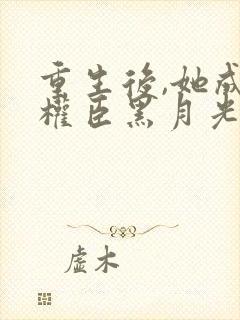 重生後,她成
權臣黑月光
虛木